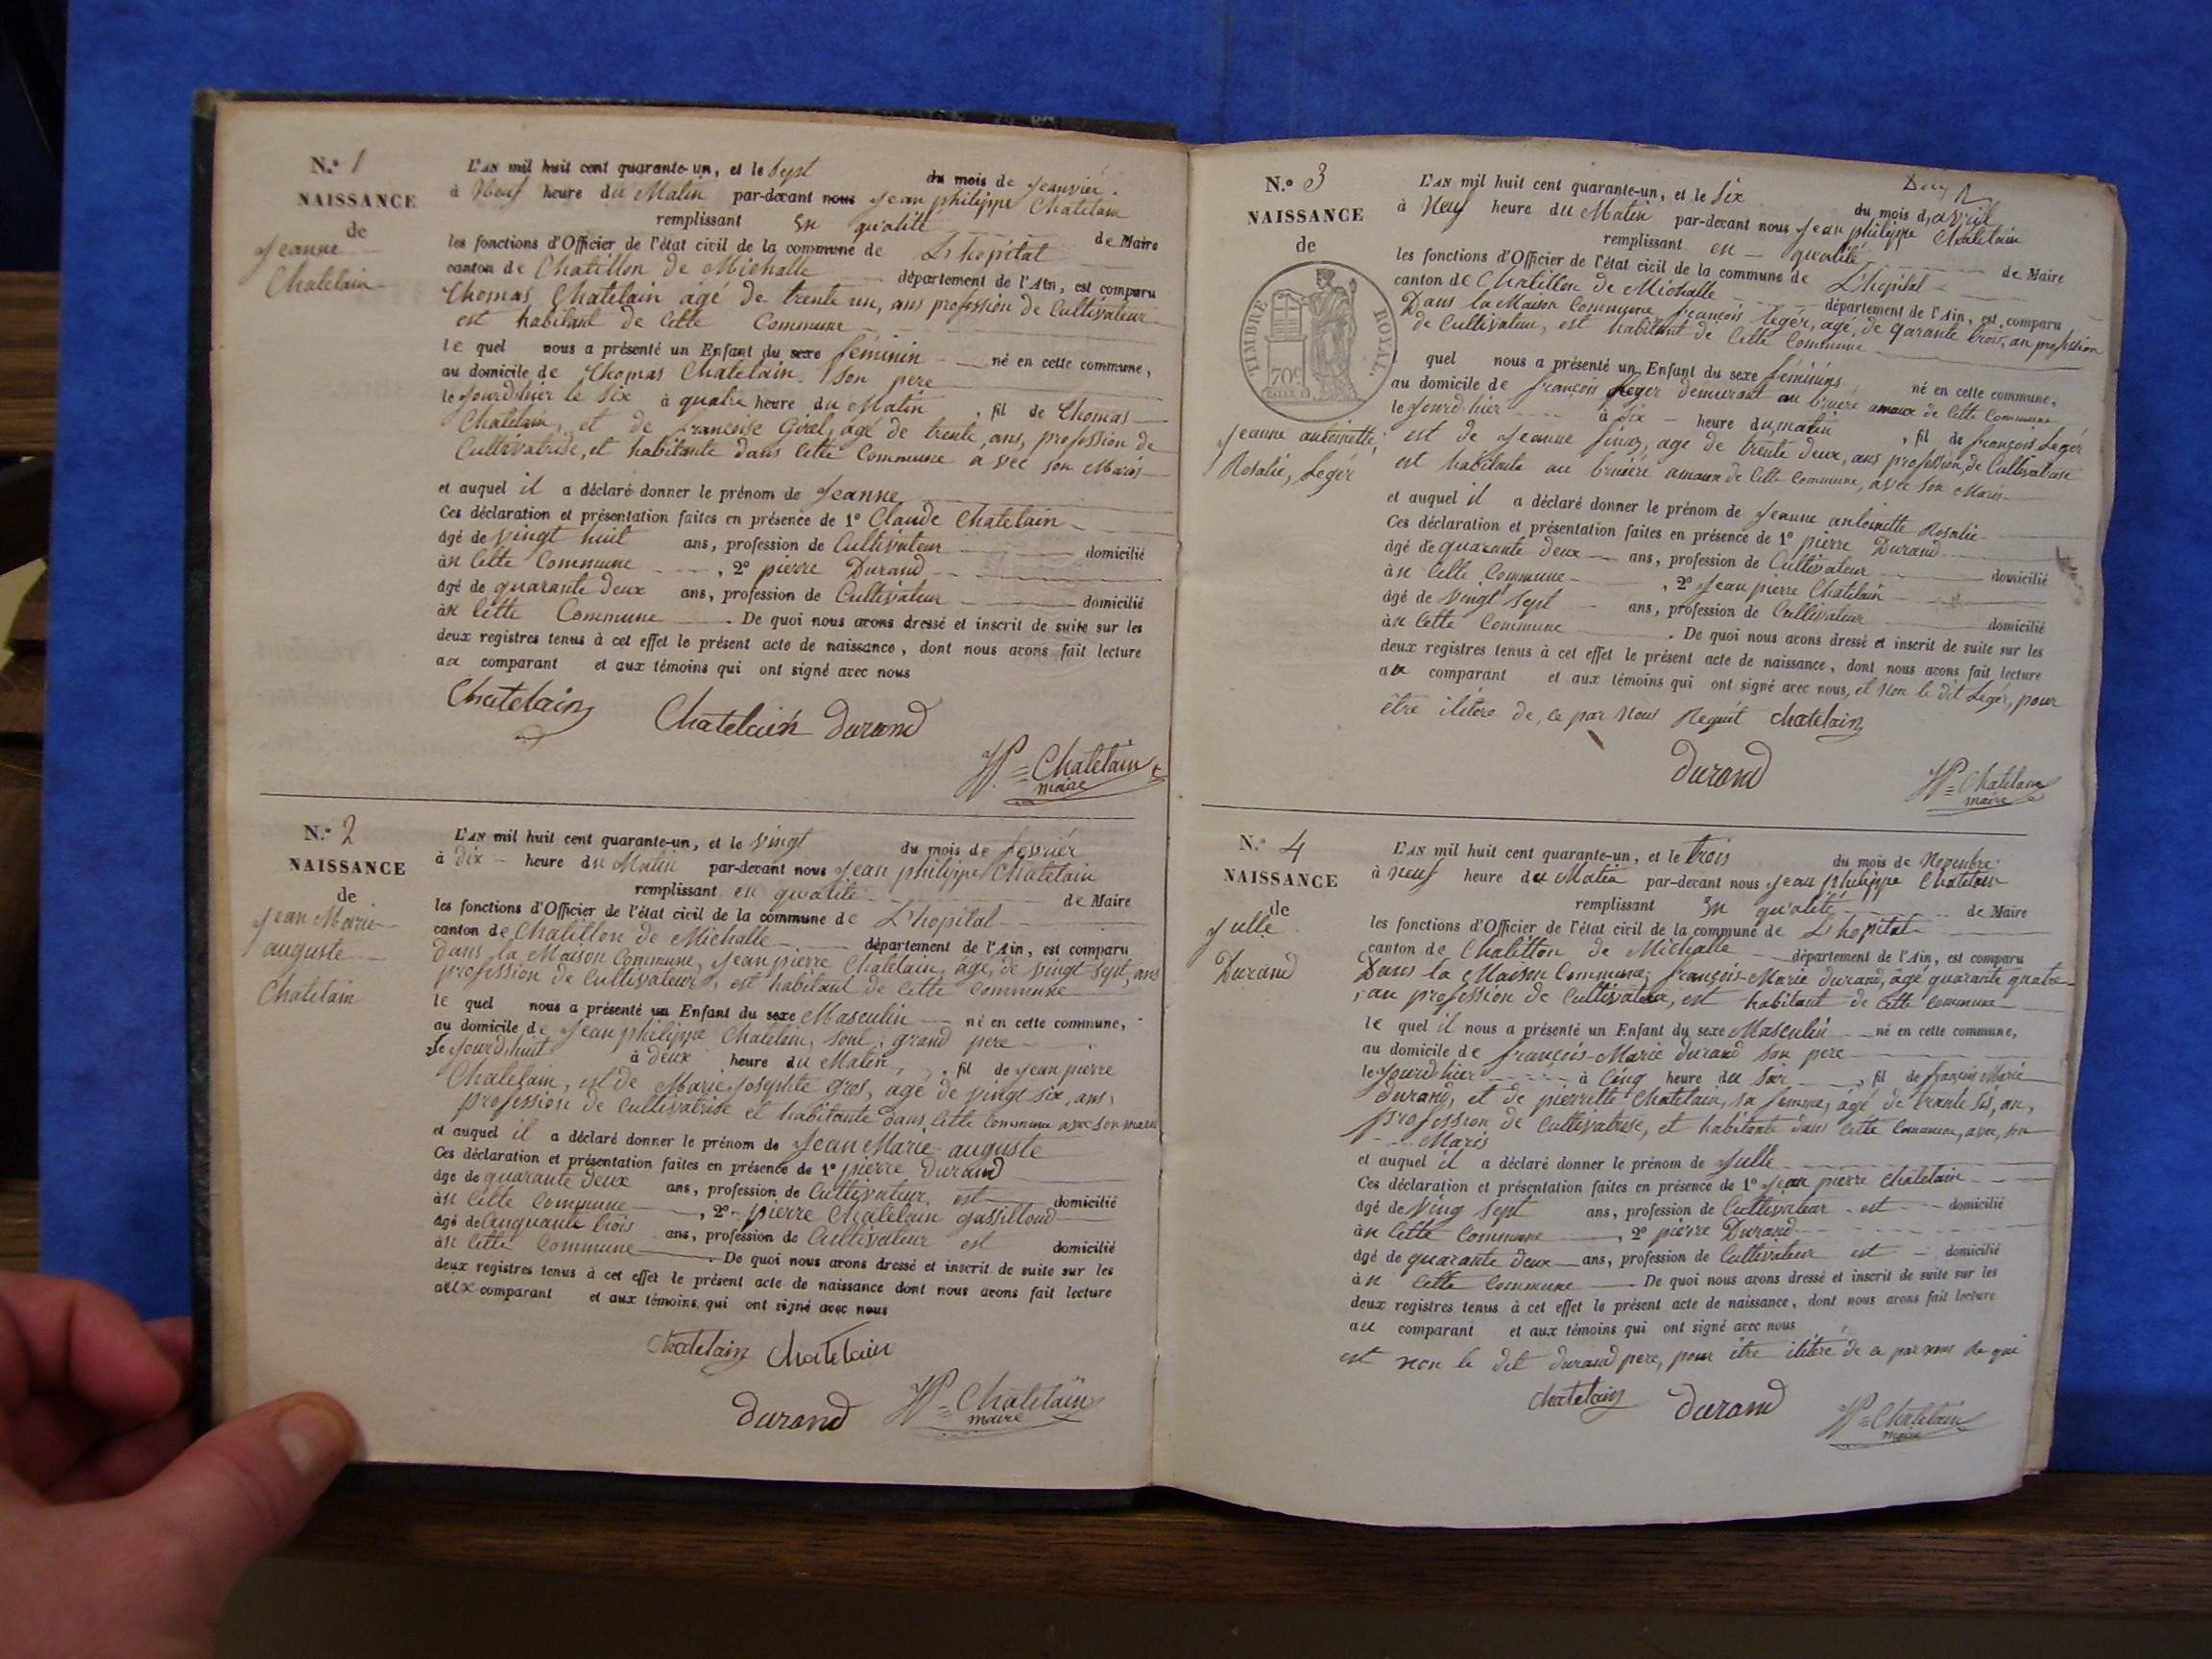 N.° 1
NAISSANCE
de
Jeanne
Chatelain
L'AN mil huit cent quarante-un, et le Sept du mois de Jeanvier.
à Neuf heure du Matin par-devant nous Jean philippe Chatelain
remplissant En qu'alité de Maire
les fonctions d'Officier de l'état civil de la commune de L'hopital
canton de Chatillon de Michalle département de l'Ain, est comparu
Thomas Chatelain âgé de trente un, ans profession de Cultivateur
est habitant de Cette Commune
le quel nous a présenté un Enfant du sexe féminin né en cette commune,
au domicile de Thomas Chatelain, son pere
le Jourd'hier le six à quatre heure du Matin, fil de Thomas
Chatelain, et de francoise Girel, agé de trente, ans, profession de
Cultivatrise, et habitante dans Cette Commune avec son Maris
et auquel il a déclaré donner le prénom de Jeanne
Ces déclaration et présentation faites en présence de 1° Claude Chatelain
âgé de vingt huit ans, profession de Cultivateur domicilié
à n Cette Commune, 2° pierre Durand
âgé de quarante deux ans, profession de Cultivateur domicilié
à n Cette Commune. De quoi nous avons dressé et inscrit de suite sur les
deux registres tenus à cet effet le présent acte de naissance, dont nous avons fait lecture
au comparant et aux témoins qui ont signé avec nous
Chatelain
Chatelain Durand
JP = Chatelain
maire
N.° 2
NAISSANCE
de
Jean Marie
auguste
Chatelain
L'AN mil huit cent quarante-un, et le vingt du mois de fevrier
à Dix heure du Matin par-devant nous Jean philippe Chatelain
remplissant en qualité de Maire
les fonctions d'Officier de l'état civil de la commune de L'hopital
canton de Chatillon de Michalle département de l'Ain, est comparu
Dans la Maison Commune, Jean pierre Chatelain, âgé, de vingt sept, ans
profession de Cultivateur, est habitant de cette commune
le quel nous a présenté un Enfant du sexe Masculin né en cette commune,
au domicile de Jean philippe Chatelain, grand pere
le Jourd'huit à deux heure du Matin, fil de Jean pierre
Chatelain, est de Marie Josephte Gros, agé de vingt six, ans,
profession de Cultivatrise et habitante dans Cette Commune avec son maris
et auquel il a déclaré donner le prénom de Jean Marie auguste
Ces déclaration et présentation faites en présence de 1° pierre Durand
âgé de quarante deux ans, profession de Cultivateur, est domicilié
à n Cette Commune, 2° pierre Chatelain
âgé de Cinquante trois ans, profession de Cultivateur est domicilié
à n Cette Commune. De quoi nous avons dressé et inscrit de suite sur les
deux registres tenus à cet effet le présent acte de naissance dont nous avons fait lecture
aux comparant et aux témoins qui ont signé avec nous
Chatelain Chatelain
Durand JP = Chatelain
maire
N.° 3
NAISSANCE
de
TIMBRE ROYAL.
70c
Jeanne antoinette
Rosalie, Legér
L'AN mil huit cent quarante-un, et le Six du mois d,avril
à Neuf heure du Matin par-devant nous Jean philippe Chatelain
remplissant en qualité de Maire
les fonctions d'Officier de l'état civil de la commune de L'hopital
canton de Chatillon de Michalle département de l'Ain, est comparu
Dans la Maison Commune françois Legér, agé, de quarante trois, an profession
de Cultivateur, est habitant de Cette Commune
quel nous a présenté un Enfant du sexe féminins né en cette commune,
au domicile de françois Leger demeurant au bruiére amaux de Cette Commune
le Jourd'hier à Six heure du matin, fil de françois Legér
est de Jeanne, age de trente deux, ans profession, de Cultivatrise
est habitante au bruiére amaux de Cette Commune, avec son Maris
et auquel il a déclaré donner le prénom de Jeanne antoinette Rosalie
Ces déclaration et présentation faites en présence de 1° pierre Durand
âgé de quarante deux ans, profession de Cultivateur domicilié
à n Cette Commune, 2° Jean pierre Chatelain
âgé de vingt sept ans, profession de Cultivateur domicilié
à n Cette Commune. De quoi nous avons dressé et inscrit de suite sur les
deux registres tenus à cet effet le présent acte de naissance, dont nous avons fait lecture
au comparant et aux témoins qui ont signé avec nous, et non le dit Legér, pour
être ilitére de, ce par Nous Requit Chatelain
Durand
JP = Chatelain
maire
N.° 4
NAISSANCE
de
Julle
Durand
L'AN mil huit cent quarante-un, et le trois du mois de Novenbre
à neuf heure du Matin par-devant nous Jean philippe Chatelain
remplissant En qu'alité de Maire
les fonctions d'Officier de l'état civil de la commune de L'hopital
canton de Chatillon de Michalle département de l'Ain, est comparu
Dans la Maison Commune, françois-Marie durand, âgé quarante quatre
an profession de Cultivateur, est habitant de Cette Commune
le quel il nous a présenté un Enfant du sexe Masculin né en cette commune,
au domicile de françois-Marie durand son pere
le Jourd'hier à Cinq heure du Soir, fil de françois Marie
durand, et de pierrette Chatelain, sa femme, agé de trante sis, an,
profession de Cultivatrise, et habitante dans Cette Commune, avec, son
Maris
et auquel il a déclaré donner le prénom de Julle
Ces déclaration et présentation faites en présence de 1° Jean pierre Chatelain
âgé de ving sept ans, profession de Cultivateur est domicilié
à n Cette Commune, 2° pierre Durand
âgé de quarante deux ans, profession de Cultivateur est domicilié
à n Cette Commune. De quoi nous avons dressé et inscrit de suite sur les
deux registres tenus à cet effet le présent acte de naissance, dont nous avons fait lecture
au comparant et aux témoins qui ont signé avec nous
est non le dit durand pere, pour être ilitéré de ce par nous
Chatelain Durand JP = Chatelain
maire